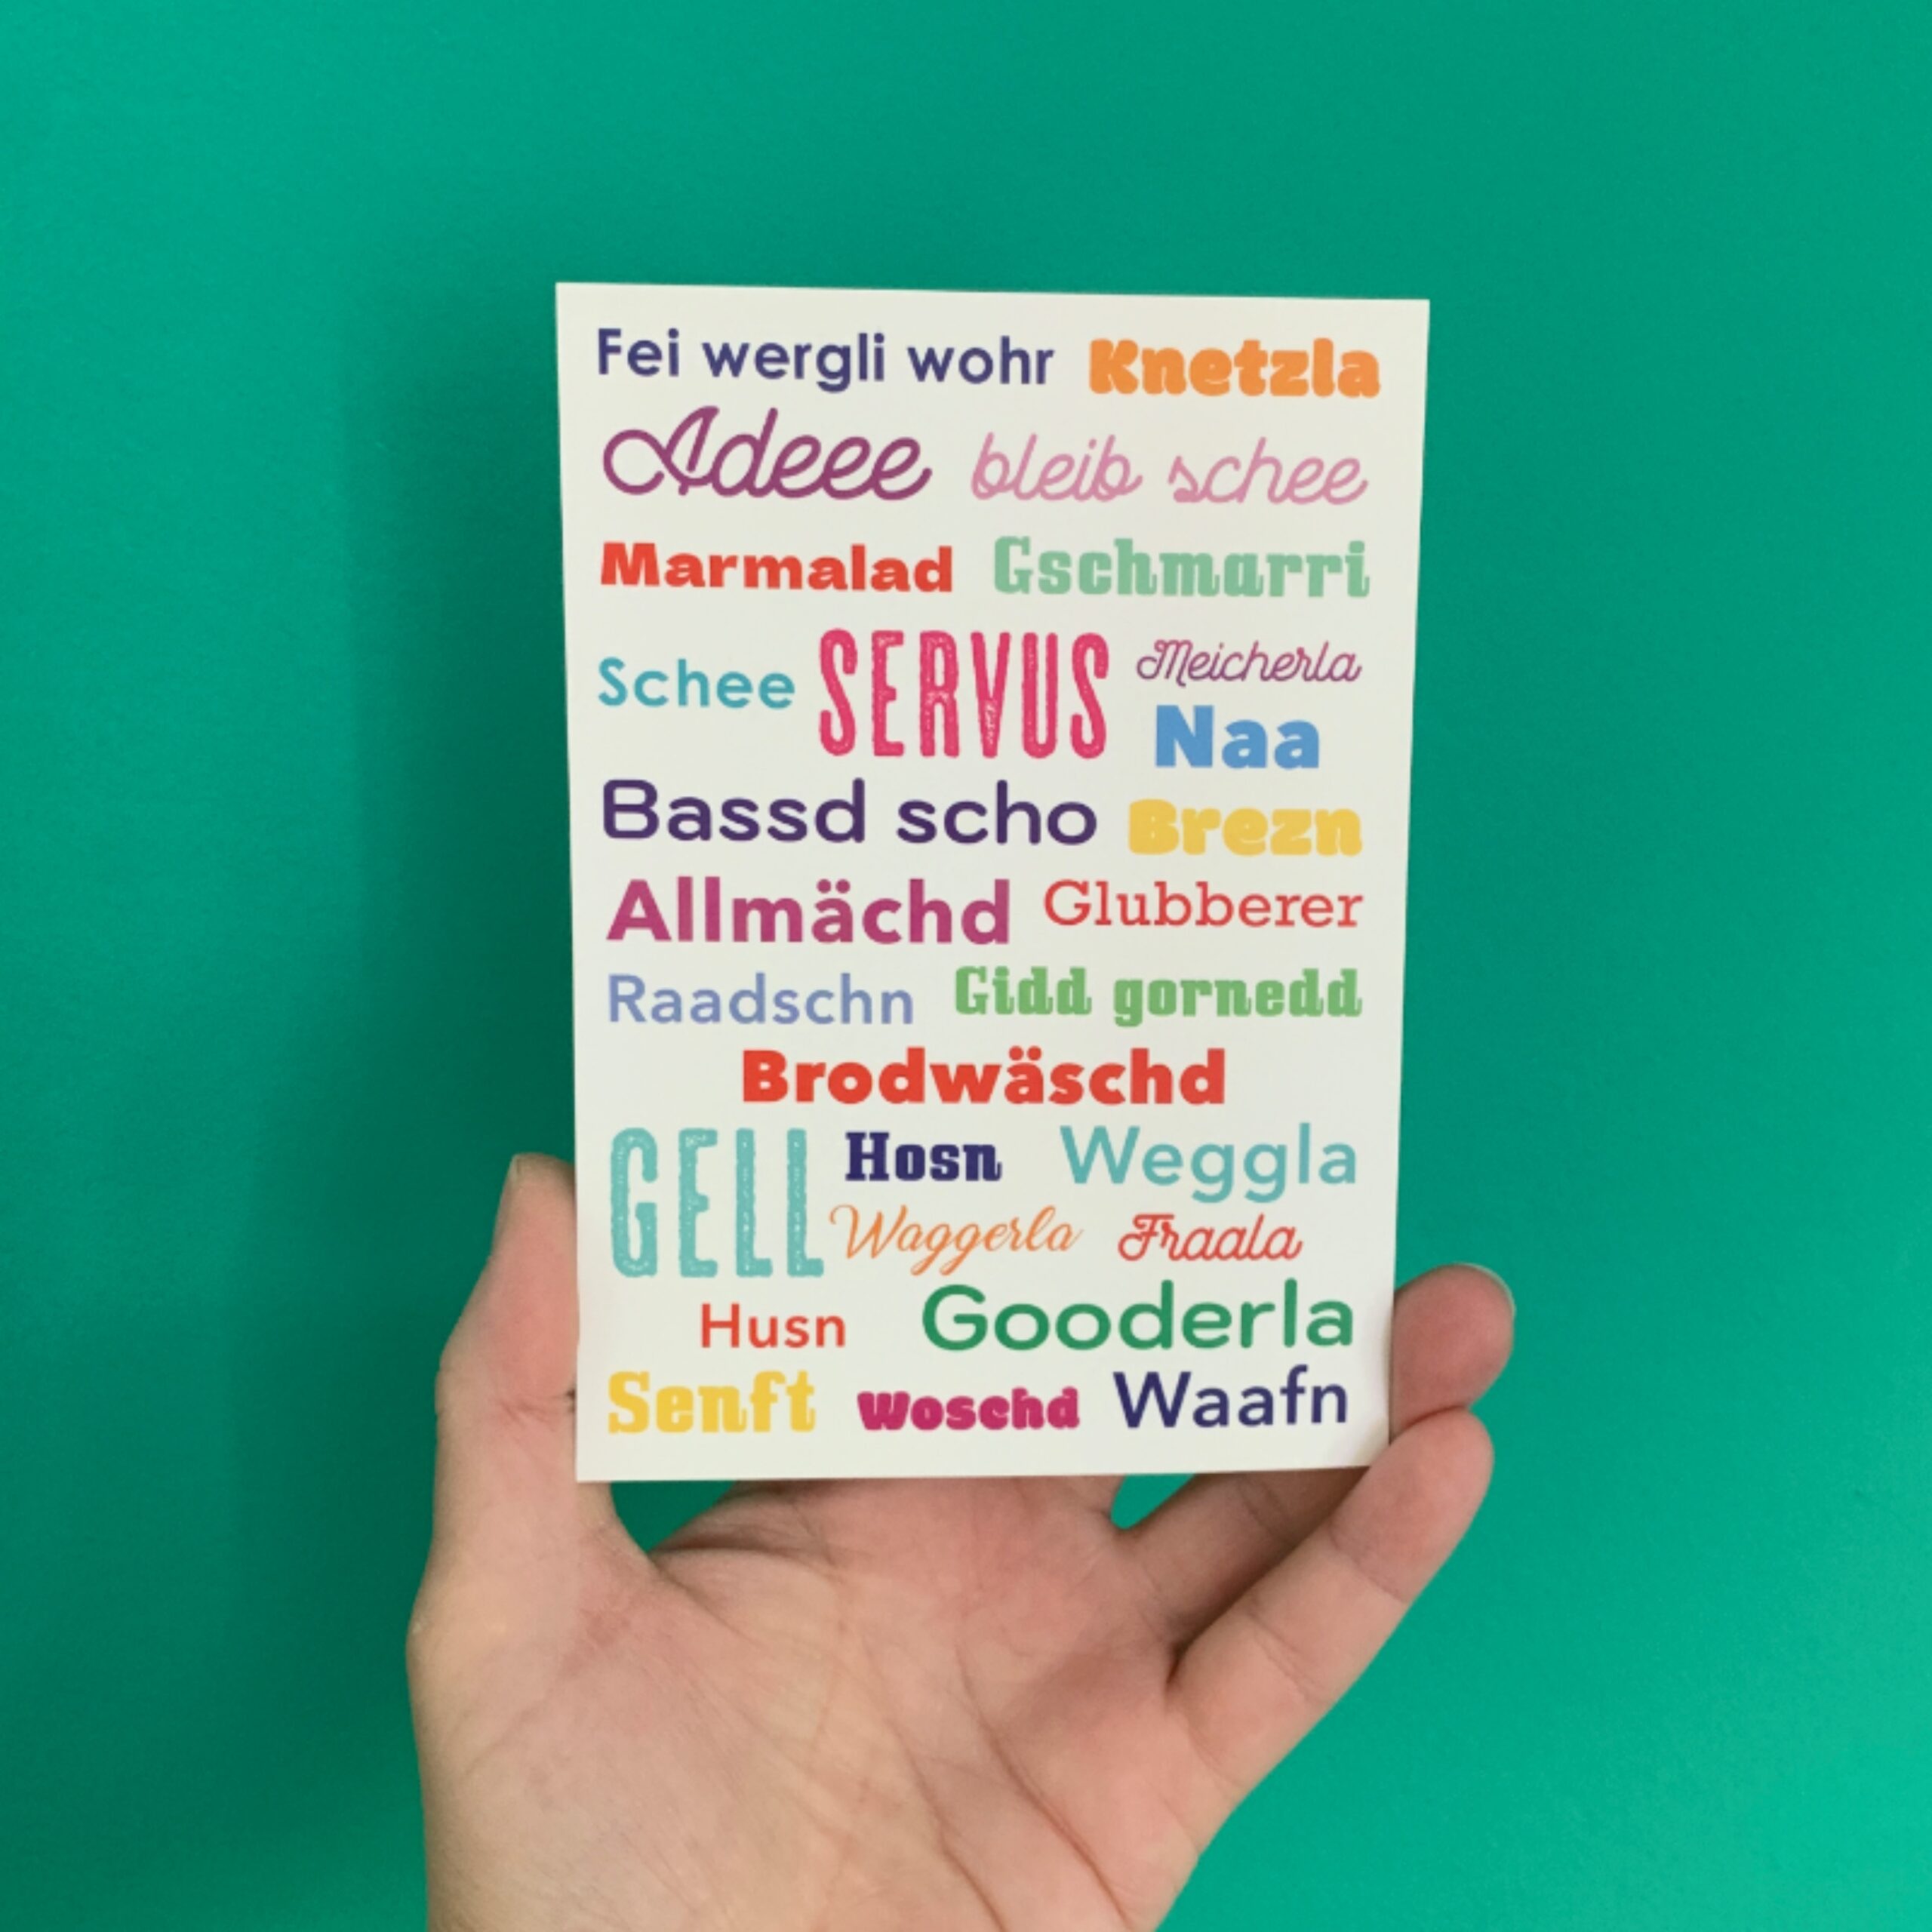 Fei wergli wohr Knetzla
Adeee bleib schee
Marmalad Gschmarri
Schee SERVUS Meicherla
Naa
Bassd scho Brezn
Allmächd Glubberer
Raadschn Gidd gornedd
Brodwäschd
GELL Hosn Weggla
Waggerla Fraala
Husn Gooderla
Senft Woschd Waafn